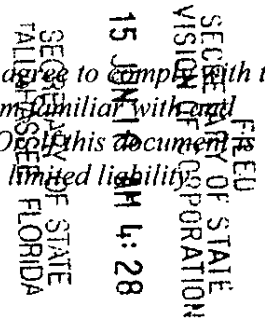 agree to comply with t
m familiar with and
Or, if this document is
limited liability
FILED
SECRETARY OF STATE
VISION OF CORPORATION
15 JUN 16 AM 4: 28
SECRETARY OF STATE
TALLAHASSEE FLORIDA